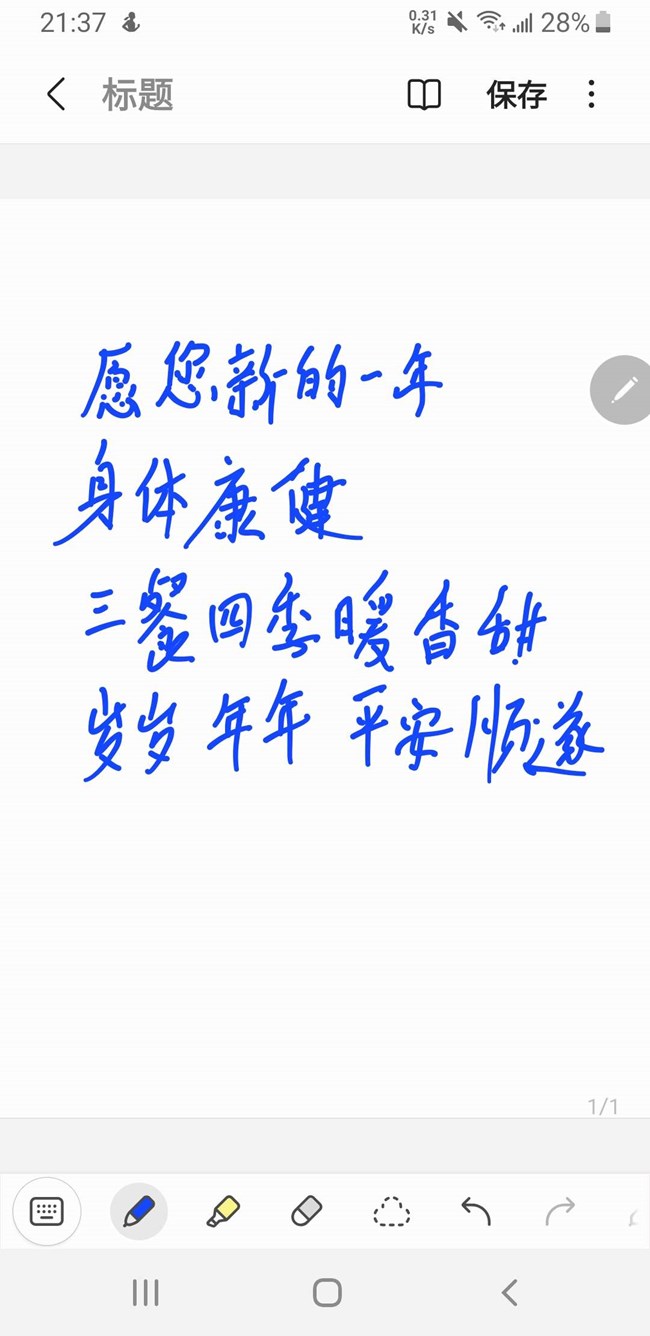 21:37 0.31 K/s 28%
标题 保存
愿您新的一年
身体康健
三餐四季暖香甜
岁岁年年 平安顺遂
1/1